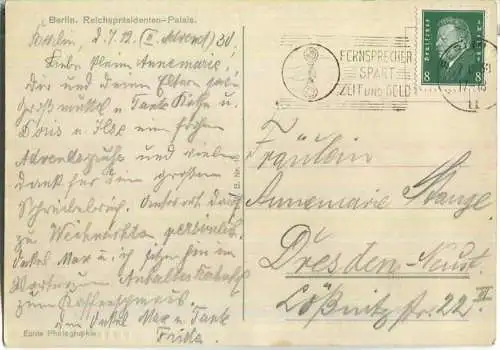 Berlin. Reichspräsidenten-Palais.
Berlin, d. 7.12. (II. Advent) 30.
Liebe kleine Annemarie,
Dir und deinen Eltern,
Großmuttel u. Tante Käthe u.
Doris u. Ilse ein frohen
Adventsgruß und vielen
Dank für Dein großen
Schreibebrief. Antwort
zu Weihnachten persönlich.
Onkel Max u. ich sitzen hier im
Wartesaal Anhalter Bahnhof
zum Kaffee
Dein Onkel Max u. Tante
Frida.
Echte Photographie
FERNSPRECHER
SPART
ZEIT UND GELD
Deutsches Reich
8 8
Fräulein
Annemarie Stange
Dresden-Neust.
Lößnitzstr. 22 III